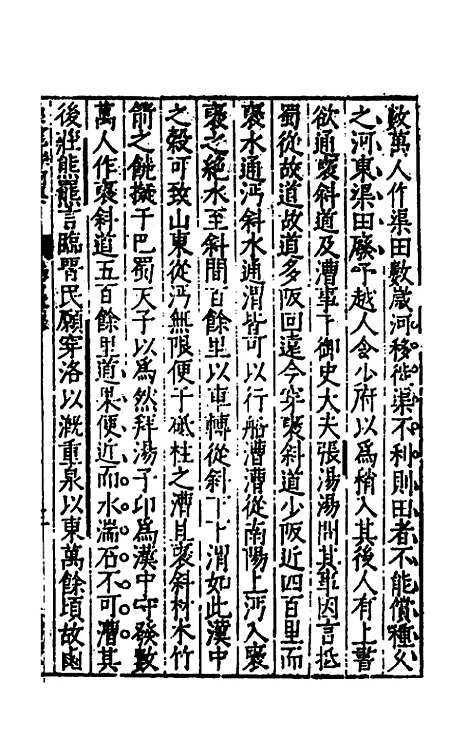 數萬人作渠田數歲河移徙渠不利則田者不能償種久
之河東渠田廢予越人令少府以為稍入其後人有上書
欲通褒斜道及漕事下御史大夫張湯湯問其事因言抵
蜀從故道故道多阪回遠今穿褒斜道少阪近四百里而
褒水通沔斜水通渭皆可以行船漕漕從南陽上沔入褒
褒之絕水至斜間百餘里以車轉從斜下下渭如此漢中
之穀可致山東從沔無限便于砥柱之漕且褒斜材木竹
箭之饒擬于巴蜀天子以為然拜湯子卬為漢中守發數
萬人作褒斜道五百餘里道果便近而水湍石不可漕其
後莊熊羆言臨晉民願穿洛以漑重泉以東萬餘頃故鹵